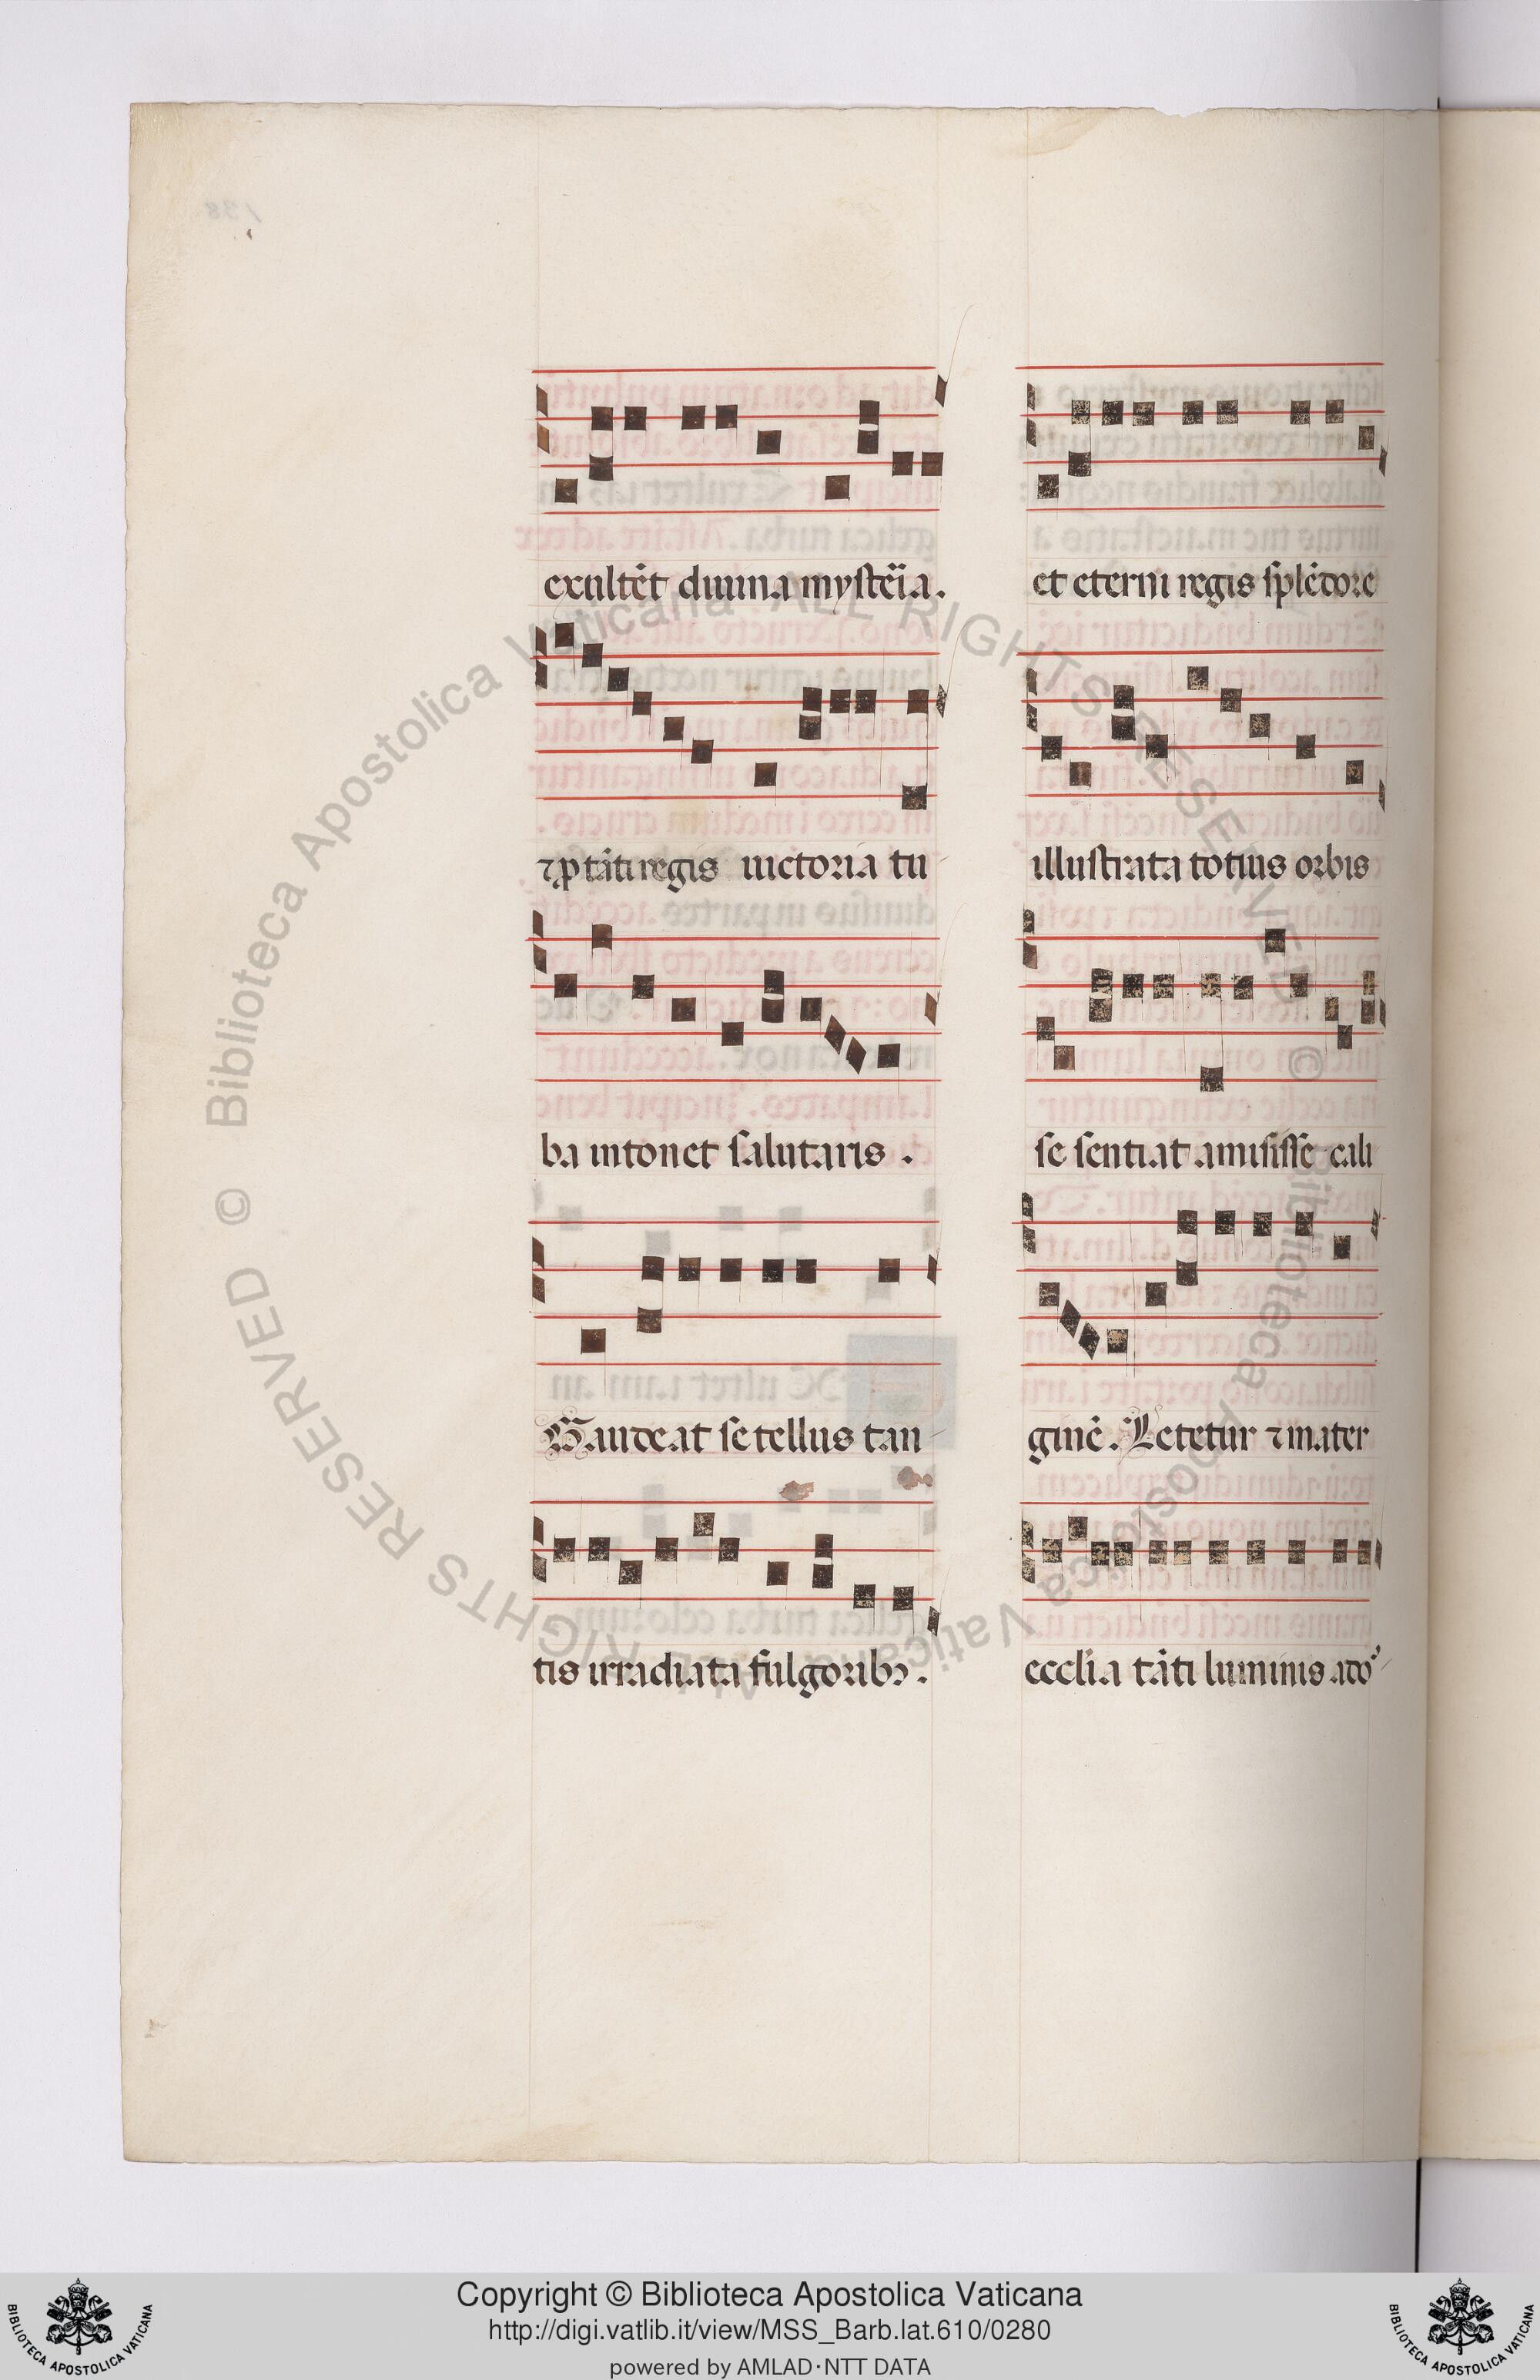 exultēt diuina mysteīa.
⁊ p tāti regis uictoria tu
ba intonet salutaris.
Gaudeat se tellus tan
tis irradiata fulgoribꝫ.
et eterni regis splēdore
illustrata totius orbis
se sentiat amisisse cali
ginē. Letetur ⁊ mater
ecclīa tāti luminis ado
Biblioteca Apostolica Vaticana ALL RIGHTS RESERVED ©
Biblioteca Apostolica Vaticana ALL RIGHTS RESERVED ©
BIBLIOTECA APOSTOLICA VATICANA
Copyright © Biblioteca Apostolica Vaticana
http://digi.vatlib.it/view/MSS_Barb.lat.610/0280
powered by AMLAD·NTT DATA
BIBLIOTECA APOSTOLICA VATICANA